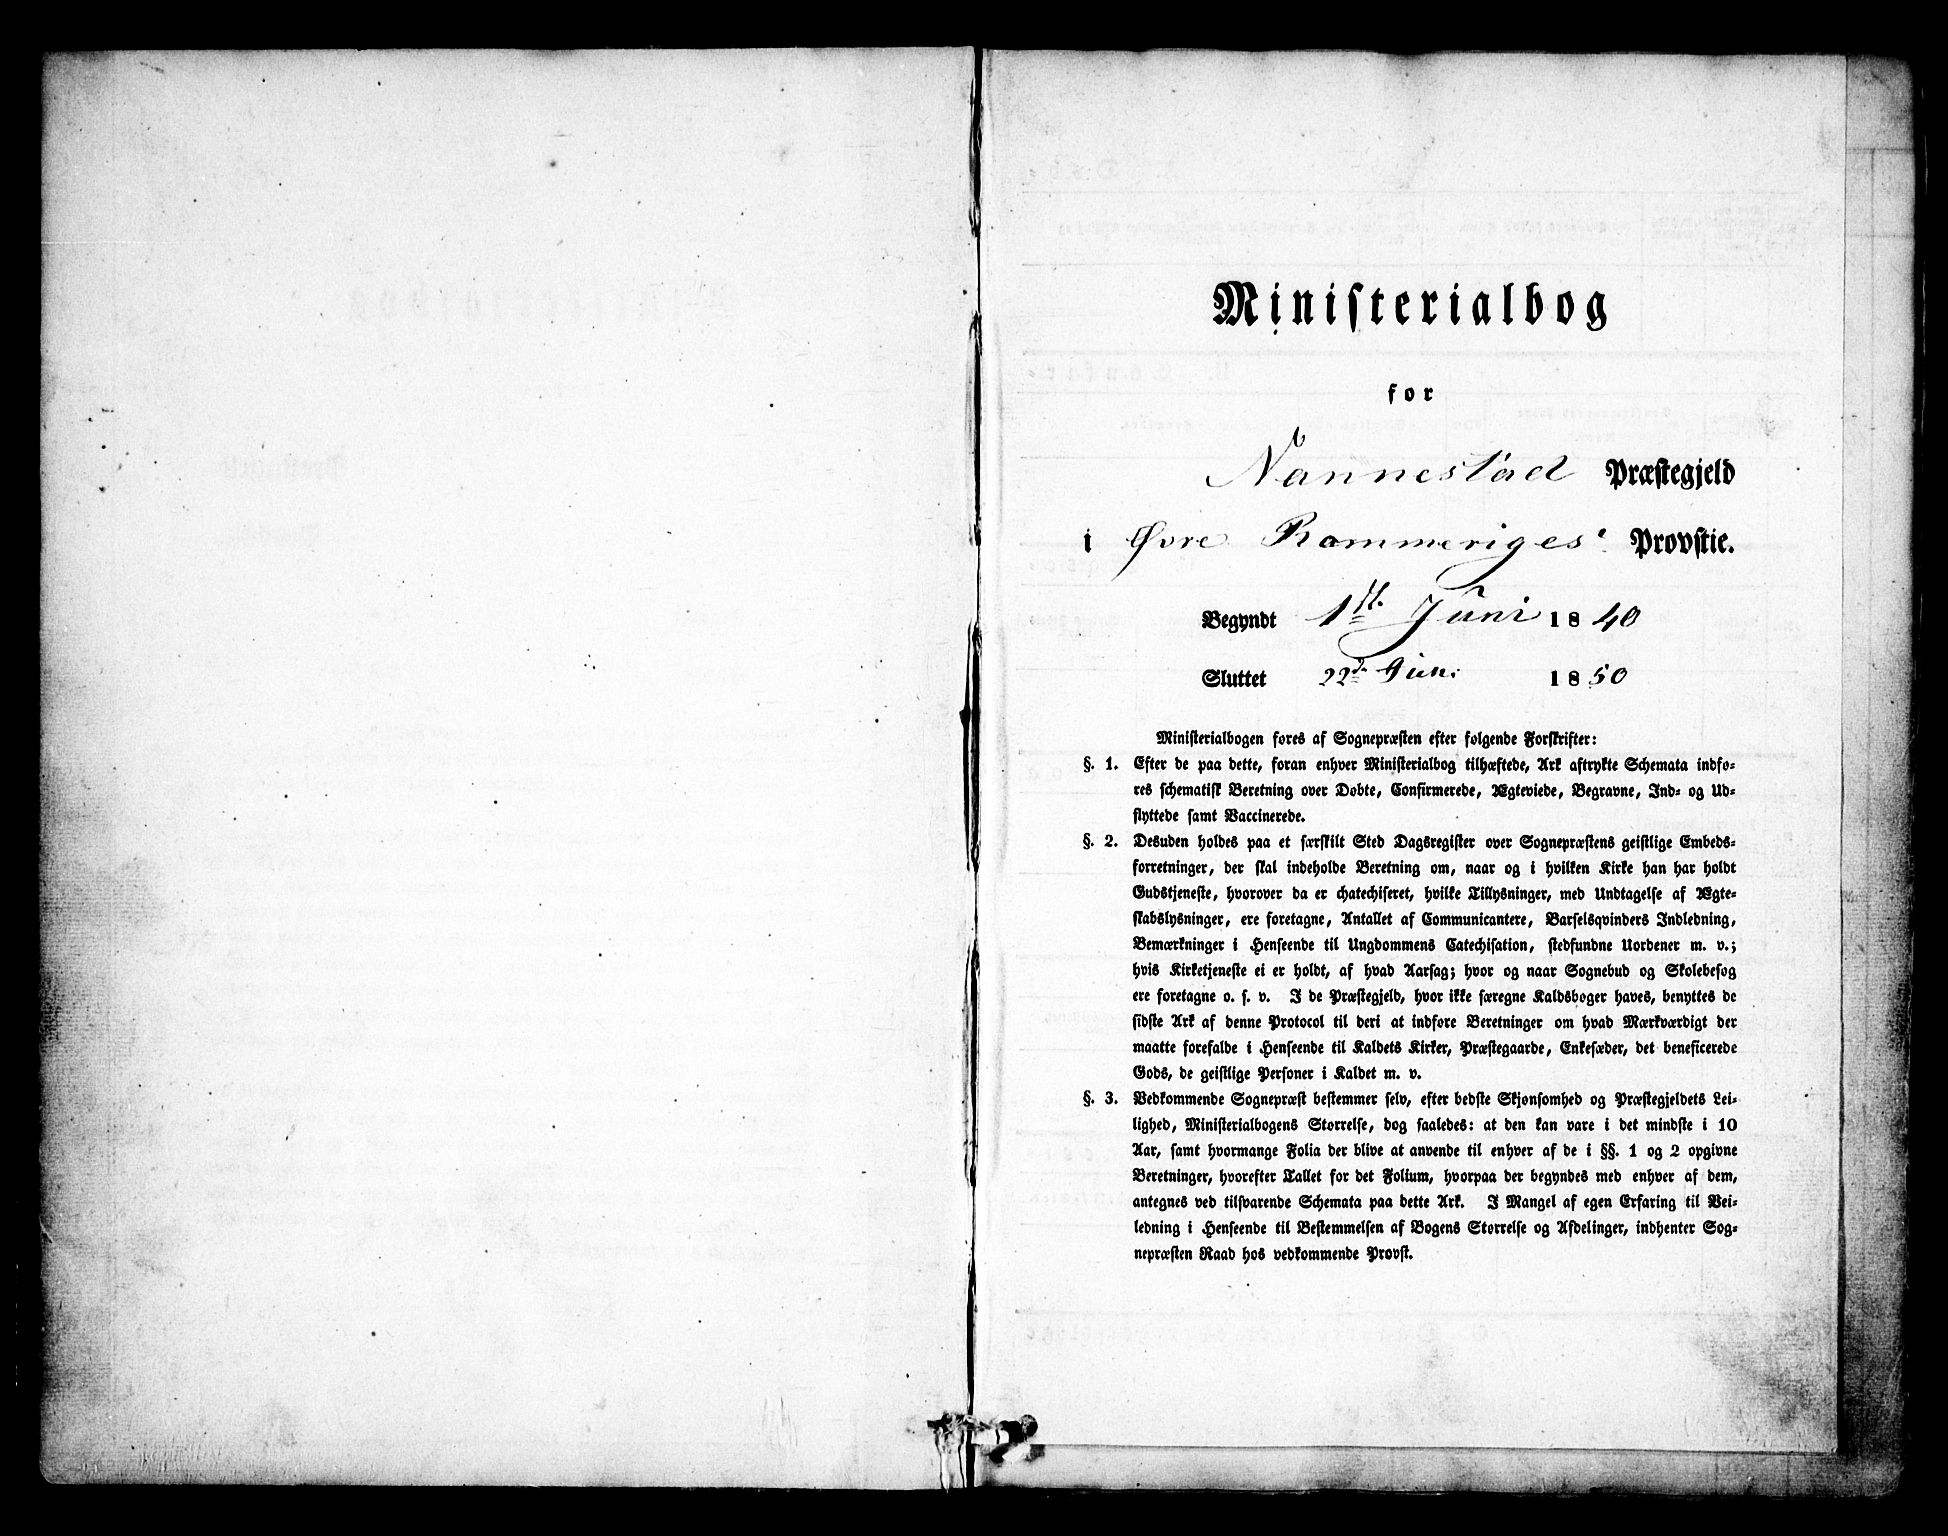 Ministerialbog
for
Nannestad Præstegjeld
i Øvre Rommeriges Provstie.
Begyndt 1ste Juni 1840
Sluttet 22de Juni 1850
Ministerialbogen føres af Sognepræsten efter følgende Forskrifter:
§. 1. Efter de paa dette, foran enhver Ministerialbog tilhæftede, Ark aftrykte Schemata indfø-
res schematisk Beretning over Døbte, Confirmerede, Ægteviede, Begravne, Ind- og Ud-
flyttede samt Vaccinerede.
§. 2. Desuden holdes paa et særskilt Sted Dagsregister over Sognepræstens geistlige Embeds-
forretninger, der skal indeholde Beretning om, naar og i hvilken Kirke han har holdt
Gudstjeneste, hvorover da er chatechiseret, hvilke Tillysninger, med Undtagelse af Ægte-
skabslysninger, ere foretagne, Antallet af Communicantere, Barselqvinders Indledning,
Bemærkninger i Henseende til Ungdommens Catechisation, stedfundne Uordener m. v.;
hvis Kirketjeneste ei er holdt, af hvad Aarsag; hvor og naar Sognebud og Skolebesøg
ere foretagne o. s. v. I de Præstegjeld, hvor ikke særegne Kaldsbøger haves, benyttes de
sidste Ark af denne Protocol til deri at indføre Beretninger om hvad Mærkværdigt der
maatte forefalde i Henseende til Kaldets Kirker, Præstegaarde, Enkesæder, det beneficerede
Gods, de geistlige Personer i Kaldet m. v.
§. 3. Vedkommende Sognepræst bestemmer selv, efter bedste Skjønsomhed og Præstegjeldets Lei-
lighed, Ministerialbogens Størrelse, dog saaledes: at den kan vare i det mindste i 10
Aar, samt hvormange Folia der blive at anvende til enhver af de i §§. 1 og 2 opgivne
Beretninger, hvorefter Tallet for det Folium, hvorpaa der begyndes med enhver af dem,
antegnes ved tilsvarende Schemata paa dette Ark. I Mangel af egen Erfaring til Vei-
ledning i Henseende til Bestemmelsen af Bogens Størrelse og Afdelinger, indhenter Sog-
nepræsten Raad hos vedkommende Provst.